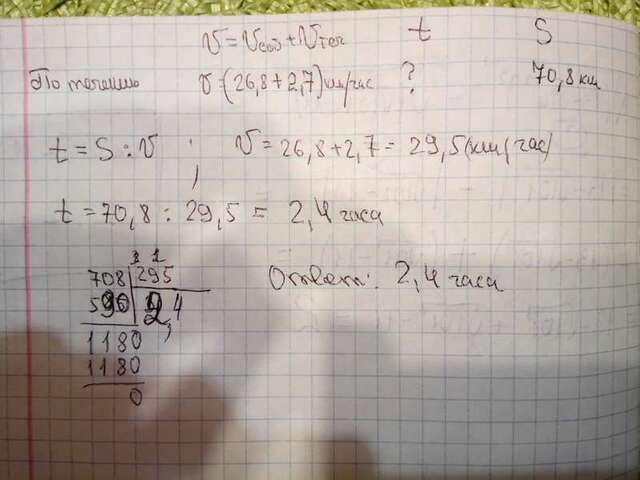 v = vсоб + vтеч t S
По течению v = (26,8 + 2,7) км/час ? 70,8 км
t = S : v ; v = 26,8 + 2,7 = 29,5 (км/час)
t = 70,8 : 29,5 = 2,4 часа
708 | 295
590 2,4
1180
1180
0
Ответ: 2,4 часа